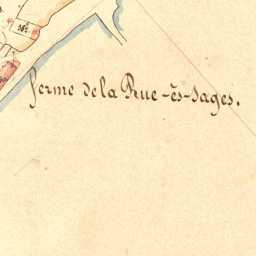 ferme de la Rue-ès-Sages.